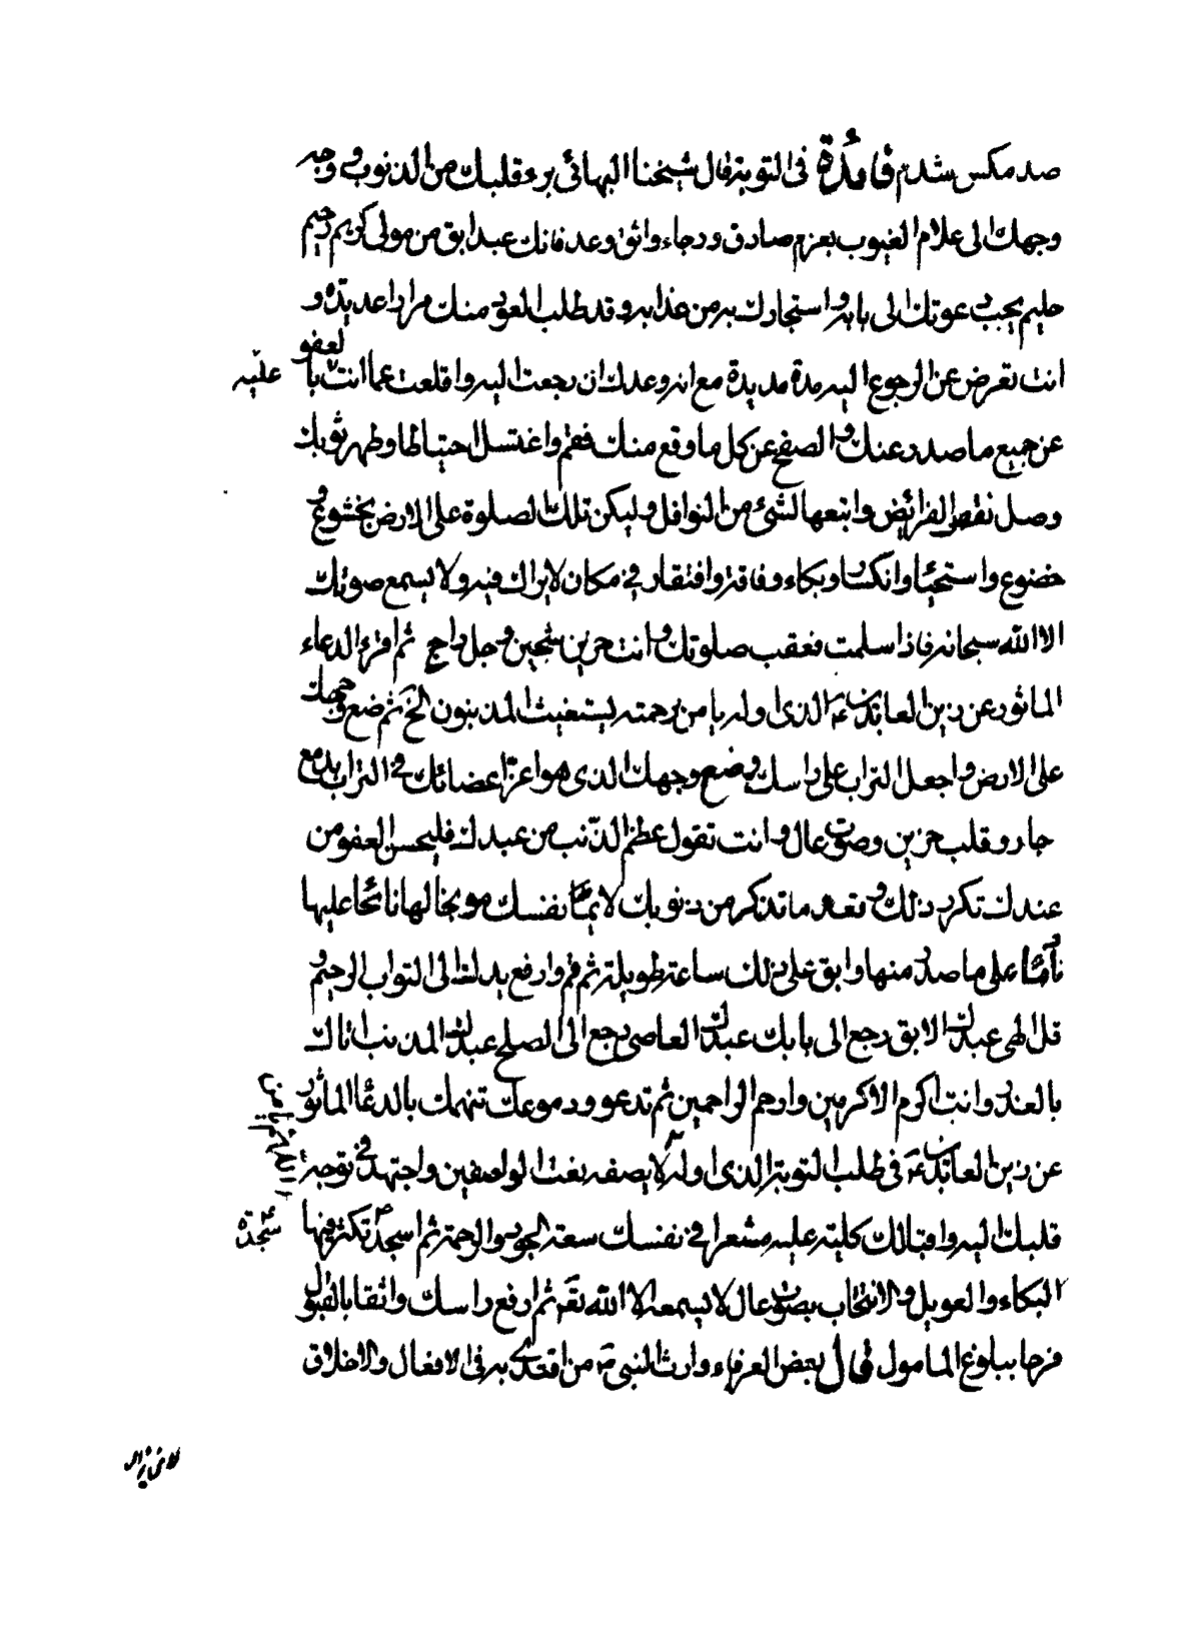 صد مكس شدم فائدة فى التوبة قال شيخنا البهائى بره قلبك من الذنوب و وجه
وجهك الى علام الغيوب بعزم صادق و رجاء واثق وعد فانك عبد ابق من مولى كريم رحيم
حليم يحب عوتك الى بابه و استجارك به من عذابه و قد طلب العود منك مرارا عديدة و
انت تعرض عن الرجوع اليه مدة مديدة مع انه وعدك ان رجعت اليه واقلعت عما انت عليه بالعفو
عن جميع ما صدر عنك و الصفح عن كل ما وقع منك فقم واغتسل احتياطا وطهر ثوبك
وصل بعض الفرائض واتبعها لشئ من النوافل وليكن تلك الصلوة على الارض بخشوع و
خضوع واستحياء وانكسار وبكاء وفاقة وافتقار فى مكان لا يراك فيه ولا يسمع صوتك
الا الله سبحانه فاذا سلمت فعقب صلوتك وانت حزين شجين وجل راج ثم اقرء الدعاء
الماثور عن زين العابدين ع الذى اوله يا من برحمته يستغيث المذنبون الخ ثم ضع وجهك
على الارض واجعل التراب على راسك وضع وجهك الذى هو اعز اعضائك فى التراب بدمع
جار و قلب حزين وصوت عال وانت تقول عظم الذنب من عبدك فليحسن العفو من
عندك تكرر ذلك و تعدد ما تذكر من ذنوبك لائما نفسك موبخا لها نائحا عليها
نادما على ما صدر منها وابق على ذلك ساعة طويلة ثم قم وارفع يديك الى التواب الرحيم و
قل الهى عبدك الابق رجع الى بابك عبدك العاصى رجع الى الصلح عبدك المذنب اتاك
بالعذر وانت اكرم الاكرمين وارحم الراحمين ثم تدعو ودموعك تنهمل بالدعاء الماثور
عن زين العابدين ع فى طلب التوبة الذى اوله اللهم يا من لا يصفه نعت الواصفين واجتهد فى توجه
قلبك اليه واقبالك كليته عليه مشعرا فى نفسك سعة الجود والرحمة ثم اسجد سجدة تكثر فيها
البكاء والعويل والانتحاب بصوت عال لا يسمعه الا الله تعم ثم ارفع راسك واثقا بالقبول
فرحا ببلوغ المامول قال بعض العرفاء وارث النبى ص من اقتدى به فى الافعال والاخلاق